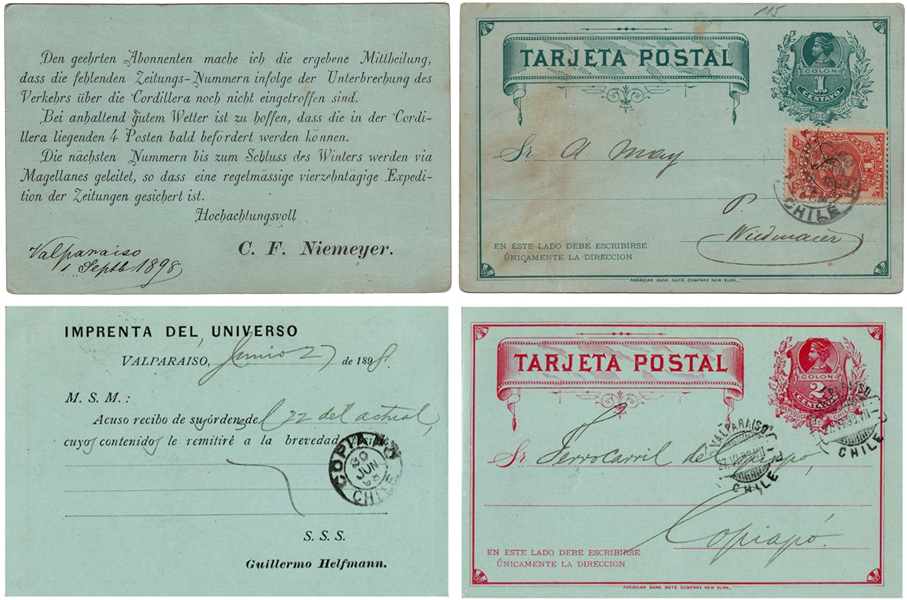 Den geehrten Abonnenten mache ich die ergebene Mittheilung,
dass die fehlenden Zeitungs-Nummern infolge der Unterbrechung des
Verkehrs über die Cordillera noch nicht eingetroffen sind.
Bei anhaltend gutem Wetter ist zu hoffen, dass die in der Cordi-
llera liegenden 4 Posten bald befördert werden können.
Die nächsten Nummern bis zum Schluss des Winters werden via
Magellanes geleitet, so dass eine regelmässige vierzehntägige Expedi-
tion der Zeitungen gesichert ist.
Hochachtungsvoll
C. F. Niemeyer.
Valparaiso
1 Septb 1898
115
TARJETA POSTAL
COLON
1
CENTAVO
Sr A. May
CHILE
P.
Wiedmaier
EN ESTE LADO DEBE ESCRIBIRSE
ÚNICAMENTE LA DIRECCION
AMERICAN BANK NOTE COMPANY NEW YORK.
IMPRENTA DEL UNIVERSO
VALPARAISO, Junio 27 de 1898.
M. S. M.:
Acuso recibo de su órden del 22 del actual,
cuyos contenidos le remitiré á la brevedad
COPIAPÓ
30
JUN
98
CHILE
S. S. S.
Guillermo Helfmann.
TARJETA POSTAL
COLON
2
CENTAVOS
VALPARAISO
CHILE
VALPARAISO
CHILE
Sr Ferrocarril de Copiapó
Copiapó.
EN ESTE LADO DEBE ESCRIBIRSE
ÚNICAMENTE LA DIRECCION
AMERICAN BANK NOTE COMPANY NEW YORK.